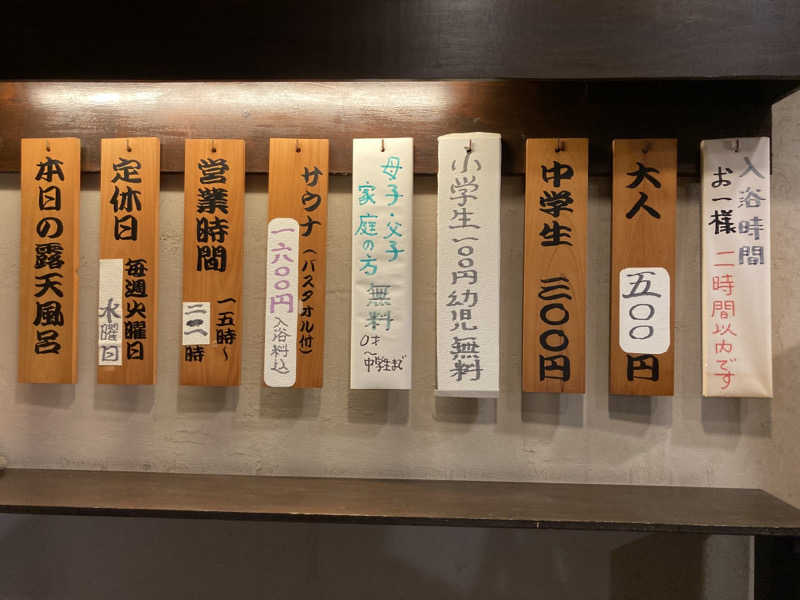 入浴時間
お一様
二時間以内です
大人
五〇〇円
中学生
三〇〇円
小学生一〇〇円幼児無料
母子・父子
家庭の方
無料
0才
〜中学生まで
サウナ(バスタオル付)
一六〇〇円
入浴料込
営業時間
一五時〜
二二時
定休日
毎週火曜日
水曜日
本日の露天風呂